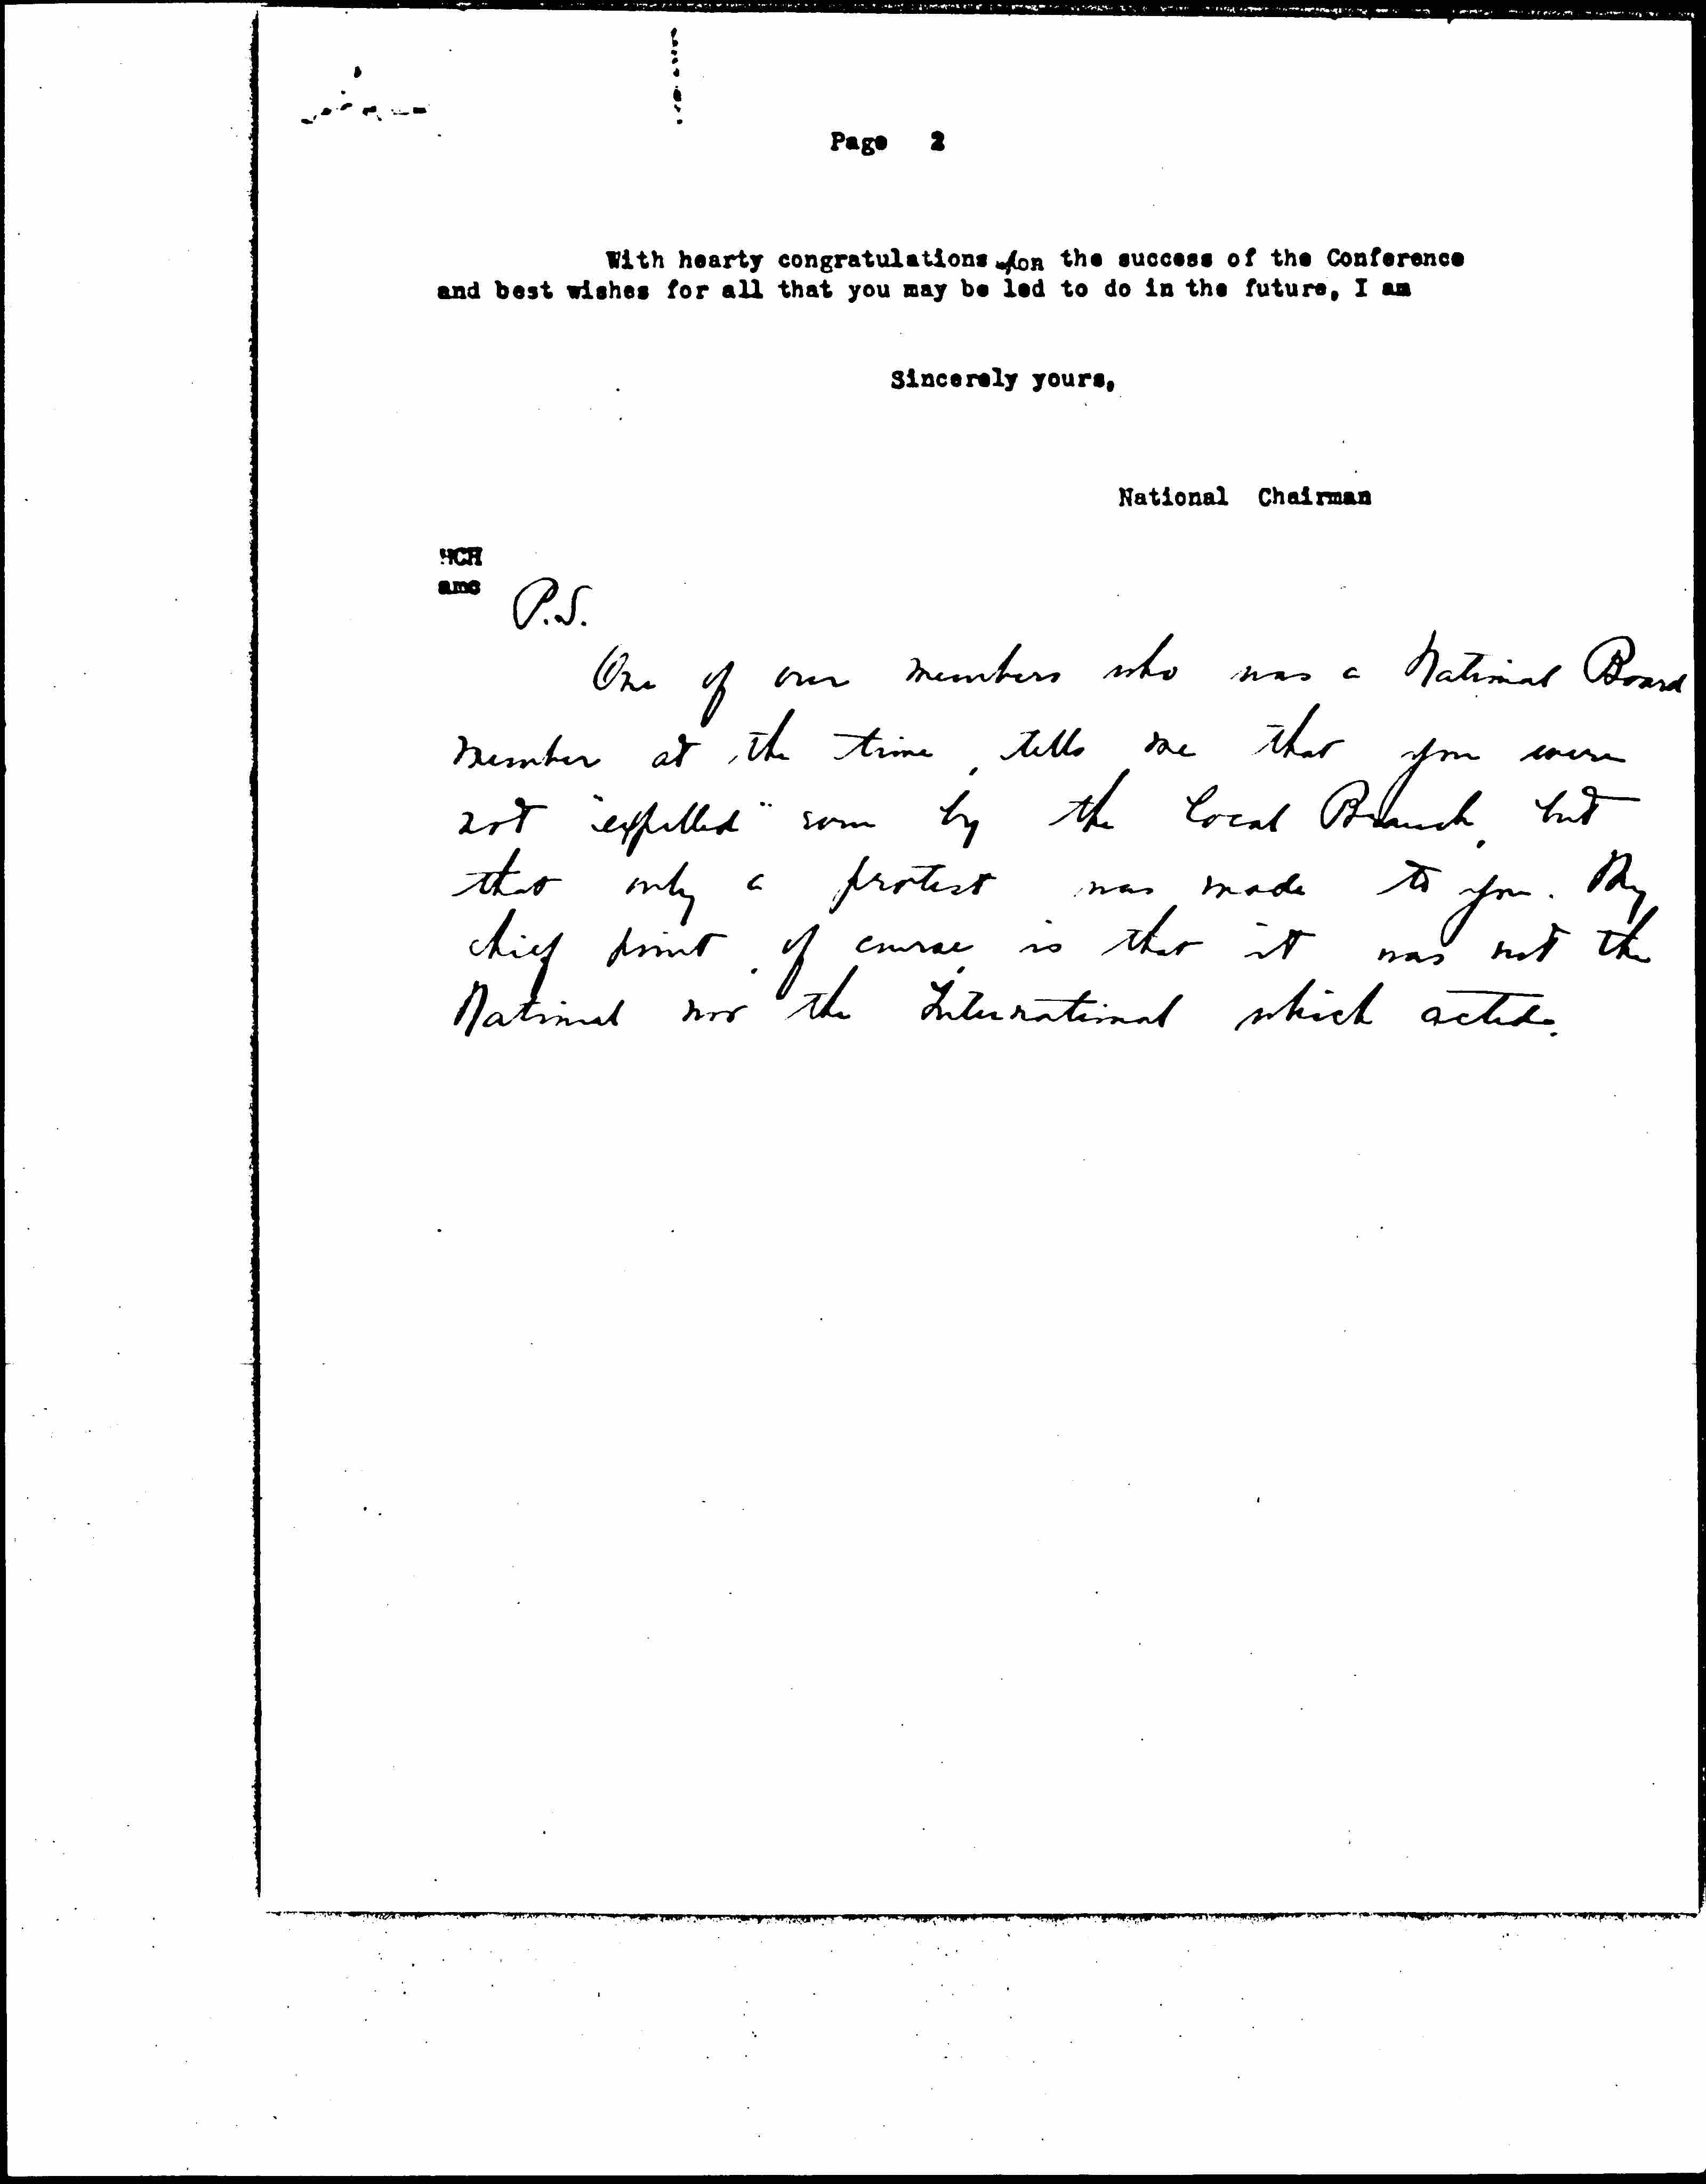 Page 2
With hearty congratulations on the success of the Conference
and best wishes for all that you may be led to do in the future, I am
Sincerely yours,
National Chairman
HCH
amc
P.S.
One of our members who was a National Board
member at the time, tells me that you were
not "expelled" even by the local Branch, but
that only a protest was made to you. My
chief point, of course, is that it was not the
National nor the International which acted.